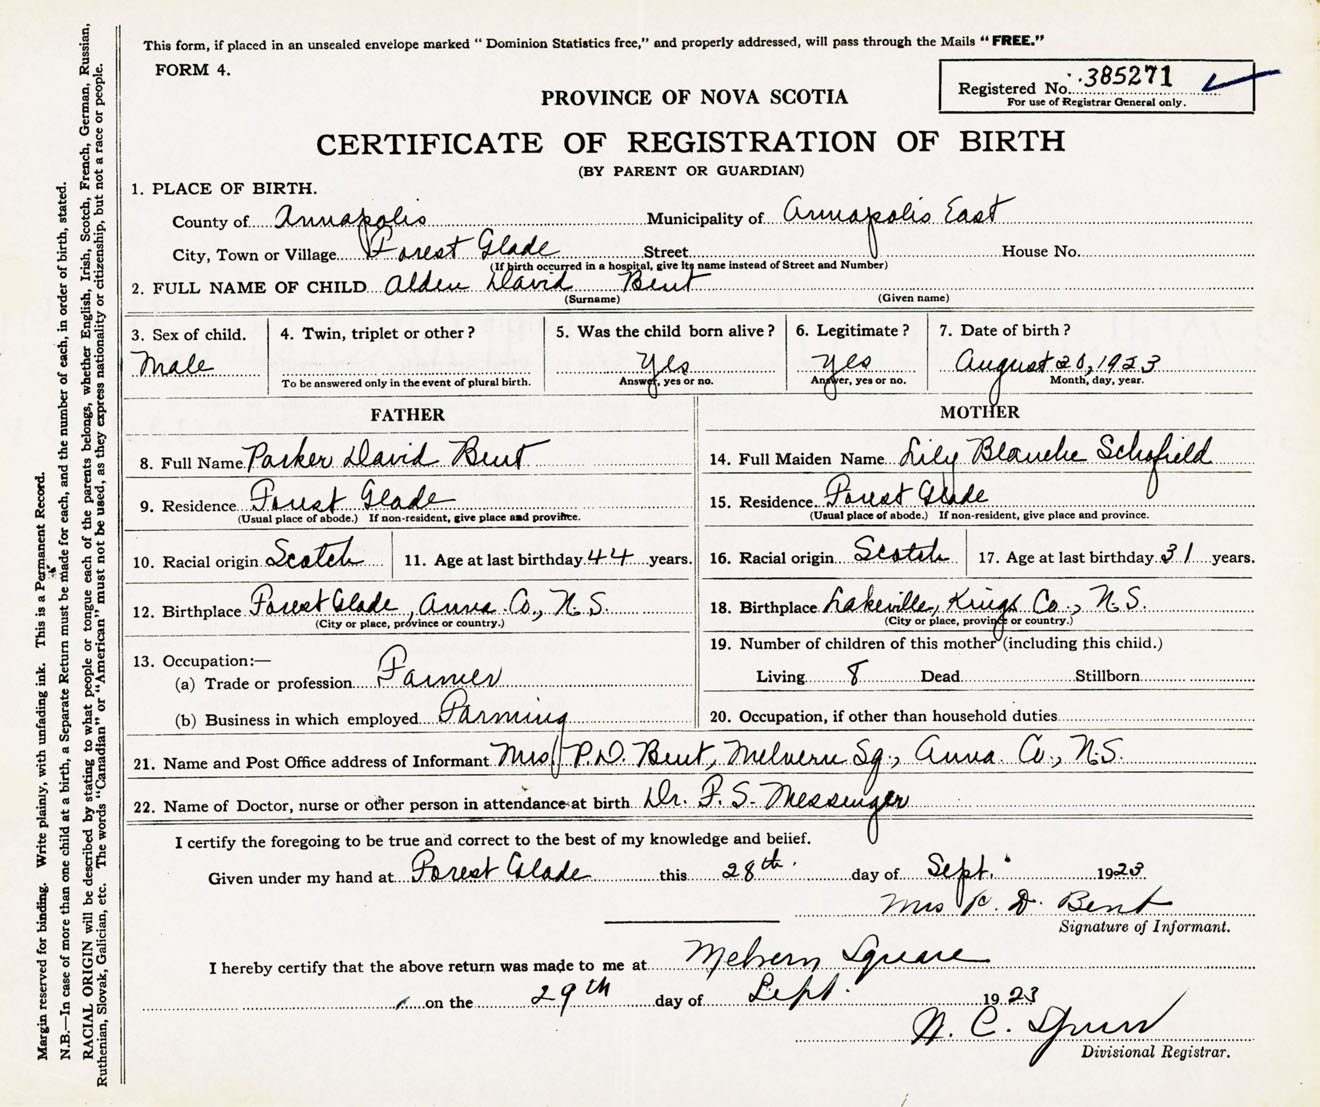 This form, if placed in an unsealed envelope marked “ Dominion Statistics free,” and properly addressed, will pass through the Mails “ FREE.”
FORM 4.
Registered No. 385271
For use of Registrar General only.
PROVINCE OF NOVA SCOTIA
CERTIFICATE OF REGISTRATION OF BIRTH
(BY PARENT OR GUARDIAN)
1. PLACE OF BIRTH.
County of Annapolis Municipality of Annapolis East
City, Town or Village Forest Glade Street House No.
(If birth occurred in a hospital, give its name instead of Street and Number)
2. FULL NAME OF CHILD Alden David Bent
(Surname) (Given name)
3. Sex of child. 4. Twin, triplet or other ? 5. Was the child born alive ? 6. Legitimate ? 7. Date of birth ?
Male Yes Yes August 20, 1923
To be answered only in the event of plural birth. Answer, yes or no. Answer, yes or no. Month, day, year.
FATHER MOTHER
8. Full Name Parker David Bent 14. Full Maiden Name Lily Blanche Schofield
9. Residence Forest Glade 15. Residence Forest Glade
(Usual place of abode.) If non-resident, give place and province. (Usual place of abode.) If non-resident, give place and province.
10. Racial origin Scotch 11. Age at last birthday 44 years. 16. Racial origin Scotch 17. Age at last birthday 31 years.
12. Birthplace Forest Glade, Anna. Co., N.S. 18. Birthplace Lakeville, Kings Co., N.S.
(City or place, province or country.) (City or place, province or country.)
13. Occupation:— 19. Number of children of this mother (including this child.)
(a) Trade or profession Farmer Living 8 Dead Stillborn
(b) Business in which employed Farming 20. Occupation, if other than household duties
21. Name and Post Office address of Informant Mrs P.D. Bent, Melvern Sq., Anna. Co., N.S.
22. Name of Doctor, nurse or other person in attendance at birth Dr. F. S. Messenger
I certify the foregoing to be true and correct to the best of my knowledge and belief.
Given under my hand at Forest Glade this 28th day of Sept. 1923
Mrs P. D. Bent
Signature of Informant.
I hereby certify that the above return was made to me at Melvern Square
on the 29th day of Sept. 1923
C.
Divisional Registrar.
Margin reserved for binding. Write plainly, with unfading ink. This is a Permanent Record.
N.B.—In case of more than one child at a birth, a Separate Return must be made for each, and the number of each, in order of birth, stated.
RACIAL ORIGIN will be described by stating to what people or tongue each of the parents belongs, whether English, Irish, Scotch, French, German, Russian,
Ruthenian, Slovak, Galician, etc. The words “Canadian” or “American” must not be used, as they express nationality or citizenship, but not a race or people.